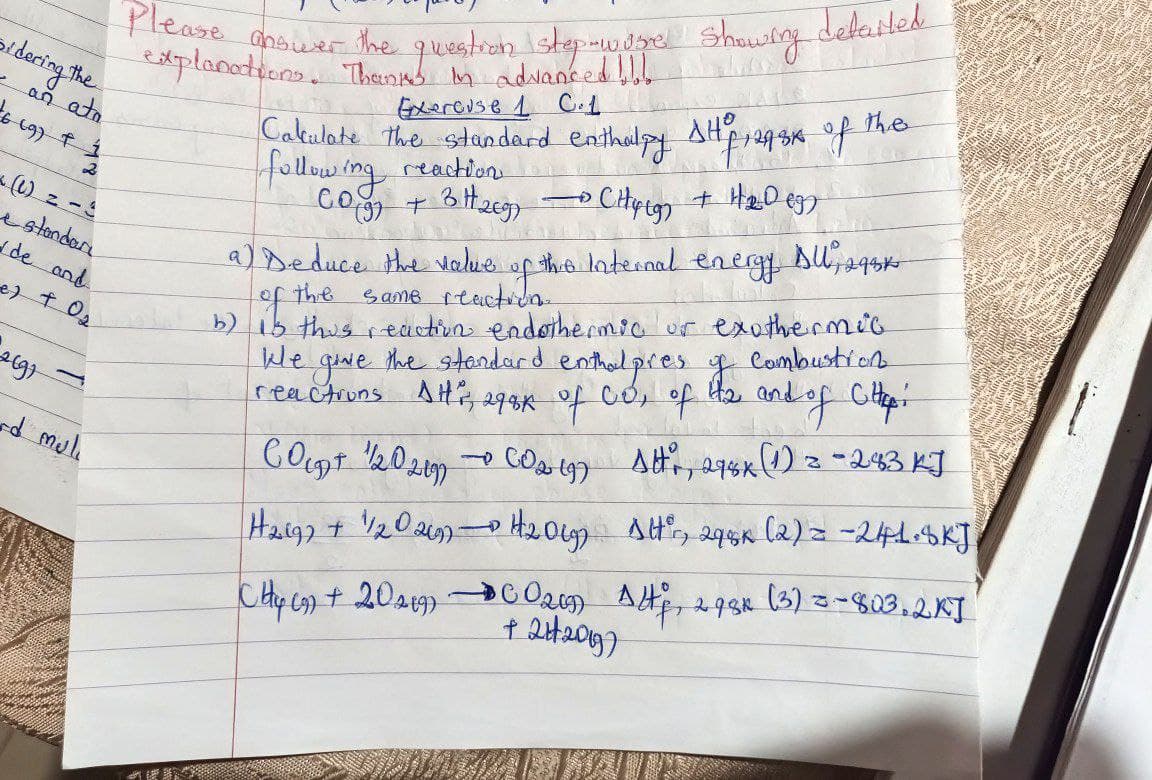 Please answer the question step-wise showing detailed
explanations. Thanks in advanced!!!
Exercise 1 C.1
Calculate the standard enthalpy ΔH°f,298K of the
following reaction
CO(g) + 3H2(g) → CH4(g) + H2O(g)
a) Deduce the value of the Internal energy ΔU°,298K
of the same reaction.
b) is this reaction endothermic or exothermic
We give the standard enthalpies of Combustion
reactions ΔH°r, 298K of CO, of H2 and of CH4:
CO(g) + 1/2O2(g) → CO2(g) ΔH°r, 298K (1) = -283 KJ
H2(g) + 1/2O2(g) → H2O(g) ΔH°r, 298K (2) = -241.8KJ
CH4(g) + 2O2(g) → CO2(g) ΔH°f, 298K (3) = -803.2KJ
+ 2H2O(g)
sidering the
an ato
e standard
ide and
+ O2
2(g) →